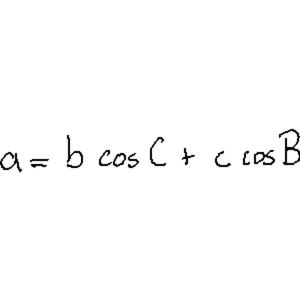 a = b cos C + c cos B